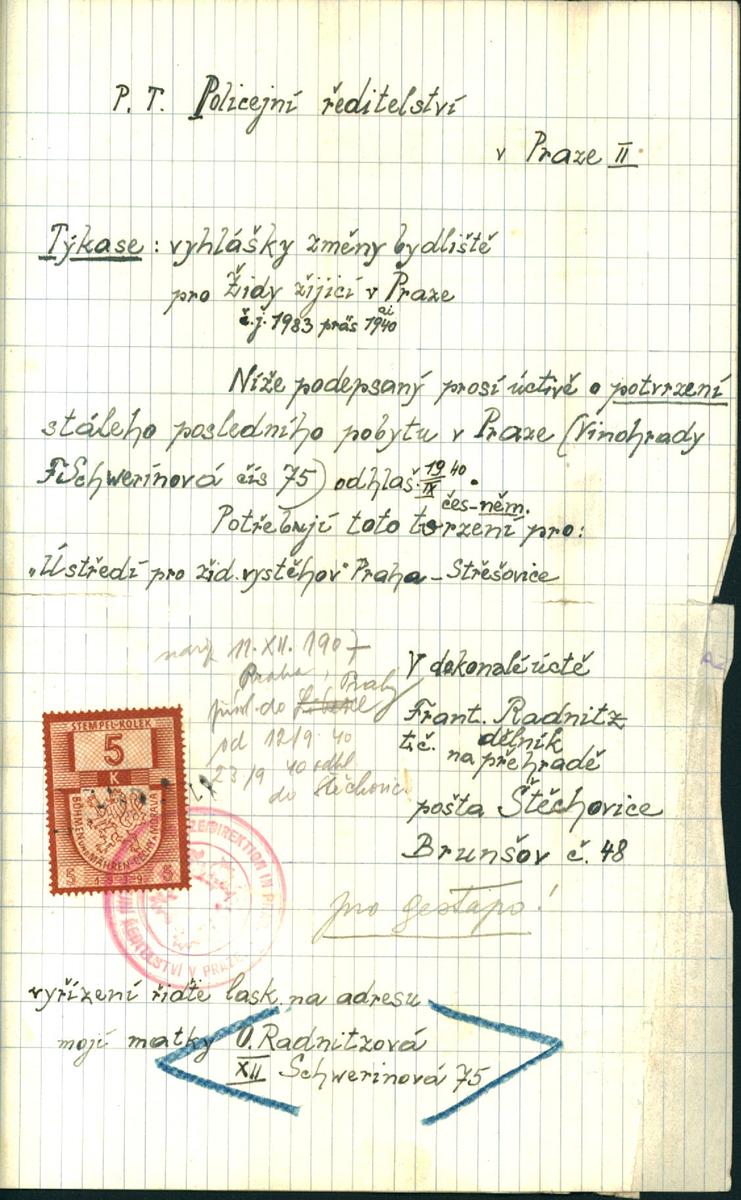 P. T. Policejní ředitelství
v Praze II
Týkase: vyhlášky změny bydliště
pro Židy žijicí v Praze
č.j. 1983 präs ai 1940
Níže podepsaný prosí úctivě o potvrzení
stálého posledního pobytu v Praze (Vinohrady
Schwerinová čís 75) odhlaš. 19/IX 40.
čes-něm.
Potřebuji toto tvrzení pro:
"Ústředí pro žid. vystěhov" Praha - Střešovice
nar. 11. XII. 1907
Praha, Prahy
do
od 12/9 40
23/9 40 odhl
do Štěchovic
V dokonalé úctě
Frant. Radnitz
t.č. dělník
na přehradě
pošta Štěchovice
Brunšov č. 48
STEMPEL-KOLEK
5
K
BÖHMEN UND MÄHREN ČECHY A MORAVA
5 1939 5
DIREKTION IN
ŘEDITELSTVÍ V PRAZE
pro gestapo!
vyřízení řiďte lask. na adresu
mojí matky O. Radnitzová
XII Schwerinová 75